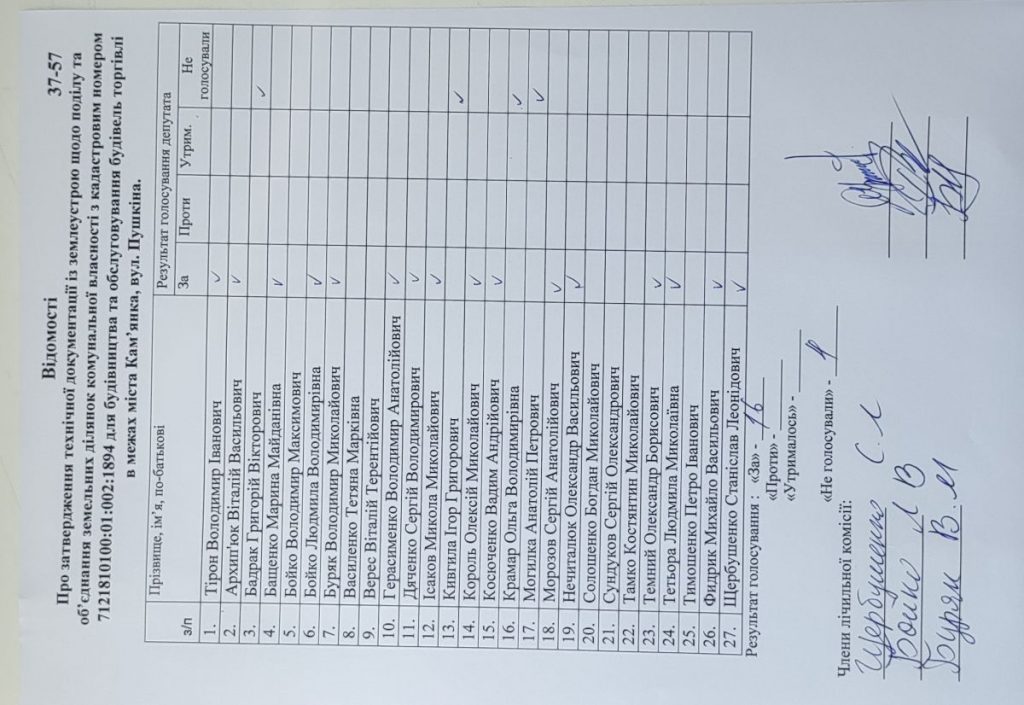 Відомості 37-57
Про затвердження технічної документації із землеустрою щодо поділу та
об'єднання земельних ділянок комунальної власності з кадастровим номером
7121810100:01:002:1894 для будівництва та обслуговування будівель торгівлі
в межах міста Кам'янка, вул. Пушкіна.
з/п Прізвище, ім'я, по-батькові Результат голосування депутата
За Проти Утрим. Не голосували
1. Тірон Володимир Іванович ✓
2. Архип'юк Віталій Васильович ✓
3. Бадрак Григорій Вікторович ✓
4. Бащенко Марина Майданівна ✓
5. Бойко Володимир Максимович
6. Бойко Людмила Володимирівна ✓
7. Буряк Володимир Миколайович ✓
8. Василенко Тетяна Марківна
9. Верес Віталій Терентійович
10. Герасименко Володимир Анатолійович ✓
11. Дяченко Сергій Володимирович ✓
12. Ісаков Микола Миколайович ✓
13. Кивгила Ігор Григорович ✓
14. Король Олексій Миколайович ✓
15. Косюченко Вадим Андрійович ✓
16. Крамар Ольга Володимирівна ✓
17. Могилка Анатолій Петрович ✓
18. Морозов Сергій Анатолійович ✓
19. Нечиталюк Олександр Васильович ✓
20. Солошенко Богдан Миколайович
21. Сундуков Сергій Олександрович
22. Тамко Костянтин Миколайович
23. Темний Олександр Борисович ✓
24. Тетьора Людмила Миколаївна ✓
25. Тимошенко Петро Іванович
26. Фидрик Михайло Васильович ✓
27. Щербушенко Станіслав Леонідович ✓
Результат голосування : «За» - 16
«Проти» -
«Утрималось» -
«Не голосували» -
Члени лічильної комісії:
Щербушенко С. Л
Бойко Л В
Буряк В. М